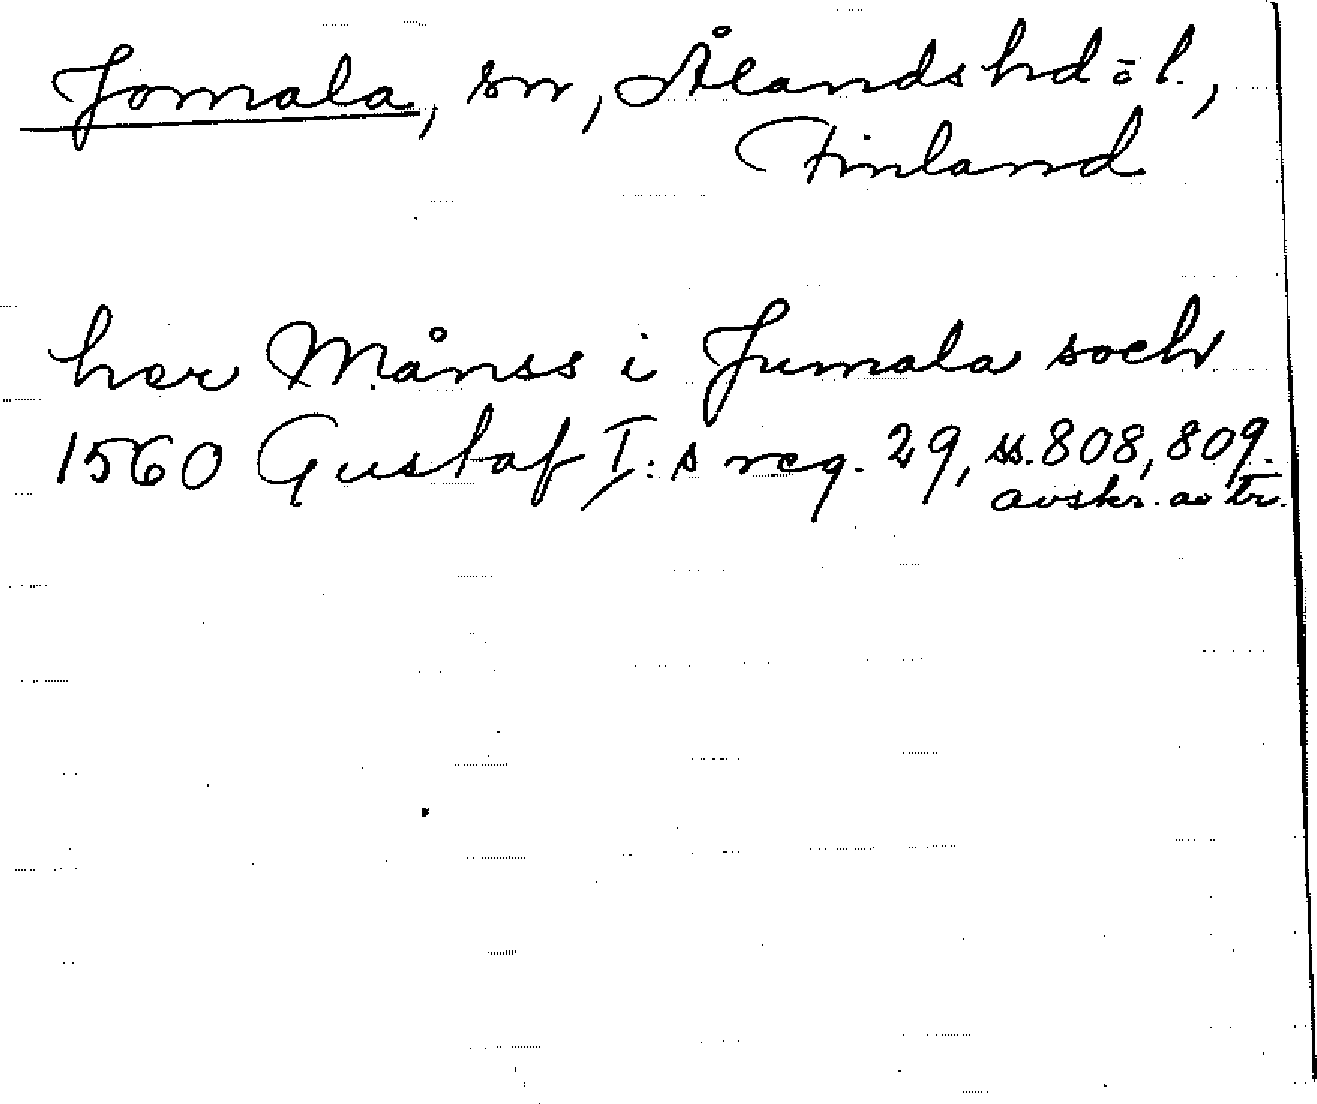 Jomala, sn, Ålands hd o l.,
Finland
her Månss i Jumala sochn
1560 Gustaf I:s reg. 29, ss. 808, 809.
avskr. av tr.